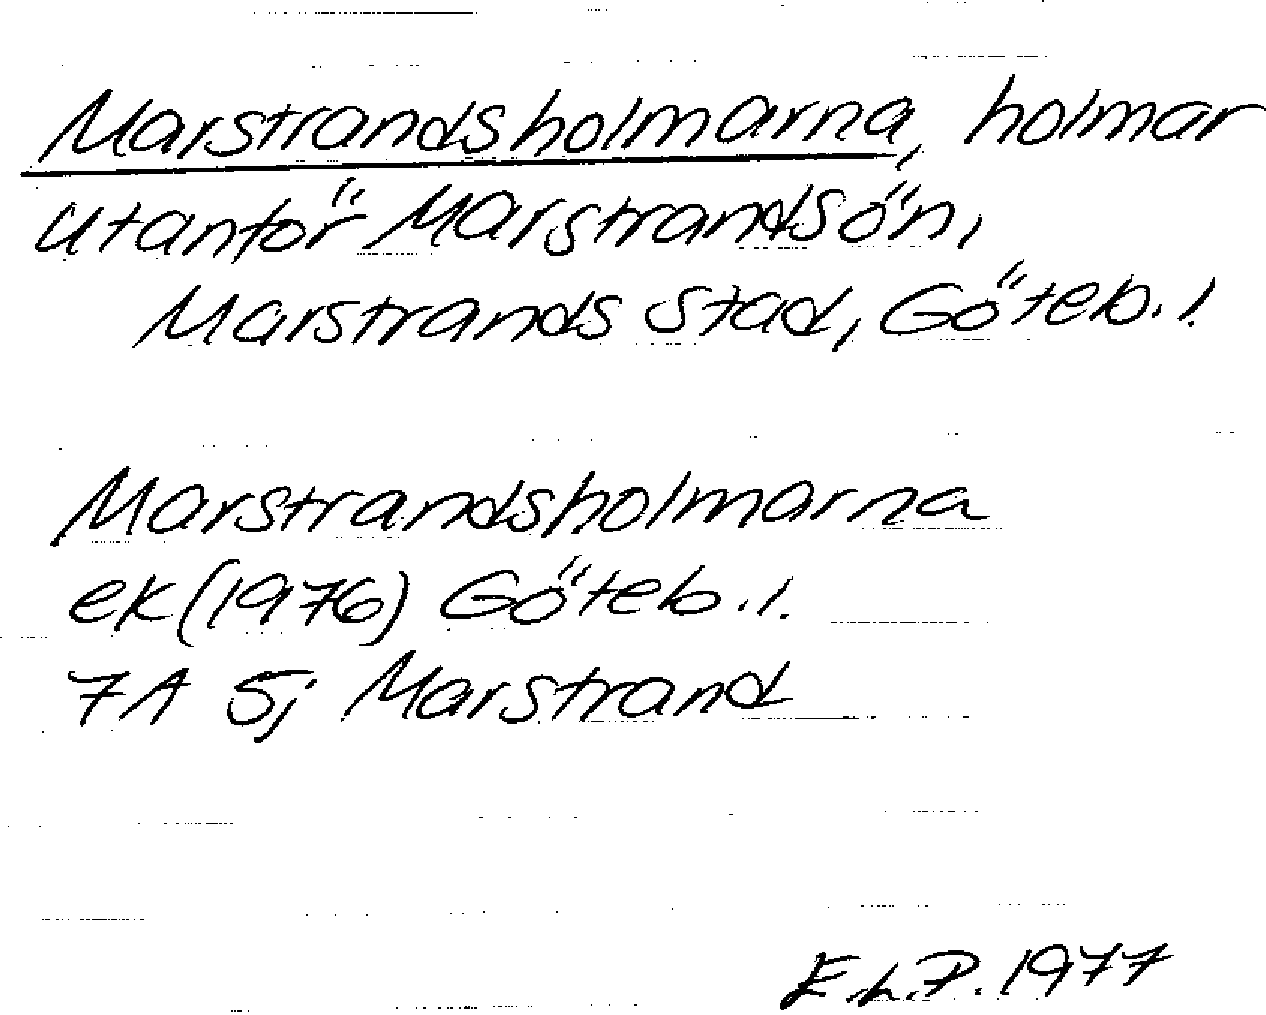 Marstrandsholmarna, holmar
utanför Marstrandsön,
Marstrands stad, Göteb. l.
Marstrandsholmarna
ek (1976) Göteb. l.
7A Sj Marstrand
E.L.P. 1977